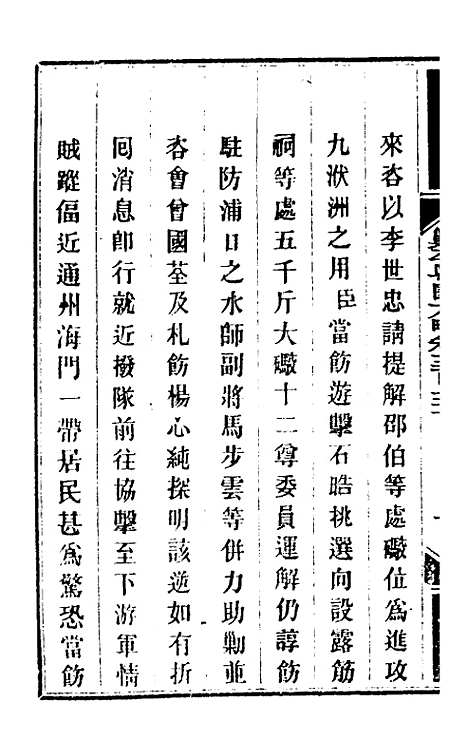 來咨以李世忠請提解邵伯等處礮位爲進攻
九洑洲之用臣當飭遊擊石晧挑選向設露筋
祠等處五千斤大礮十二尊委員運解仍諄飭
駐防浦口之水師副將馬步雲等併力助勦並
咨會曾國荃及札飭楊心純探明該逆如有折
囘消息卽行就近撥隊前往協擊至下游軍情
賊蹤偪近通州海門一帶居民甚爲驚恐當飭